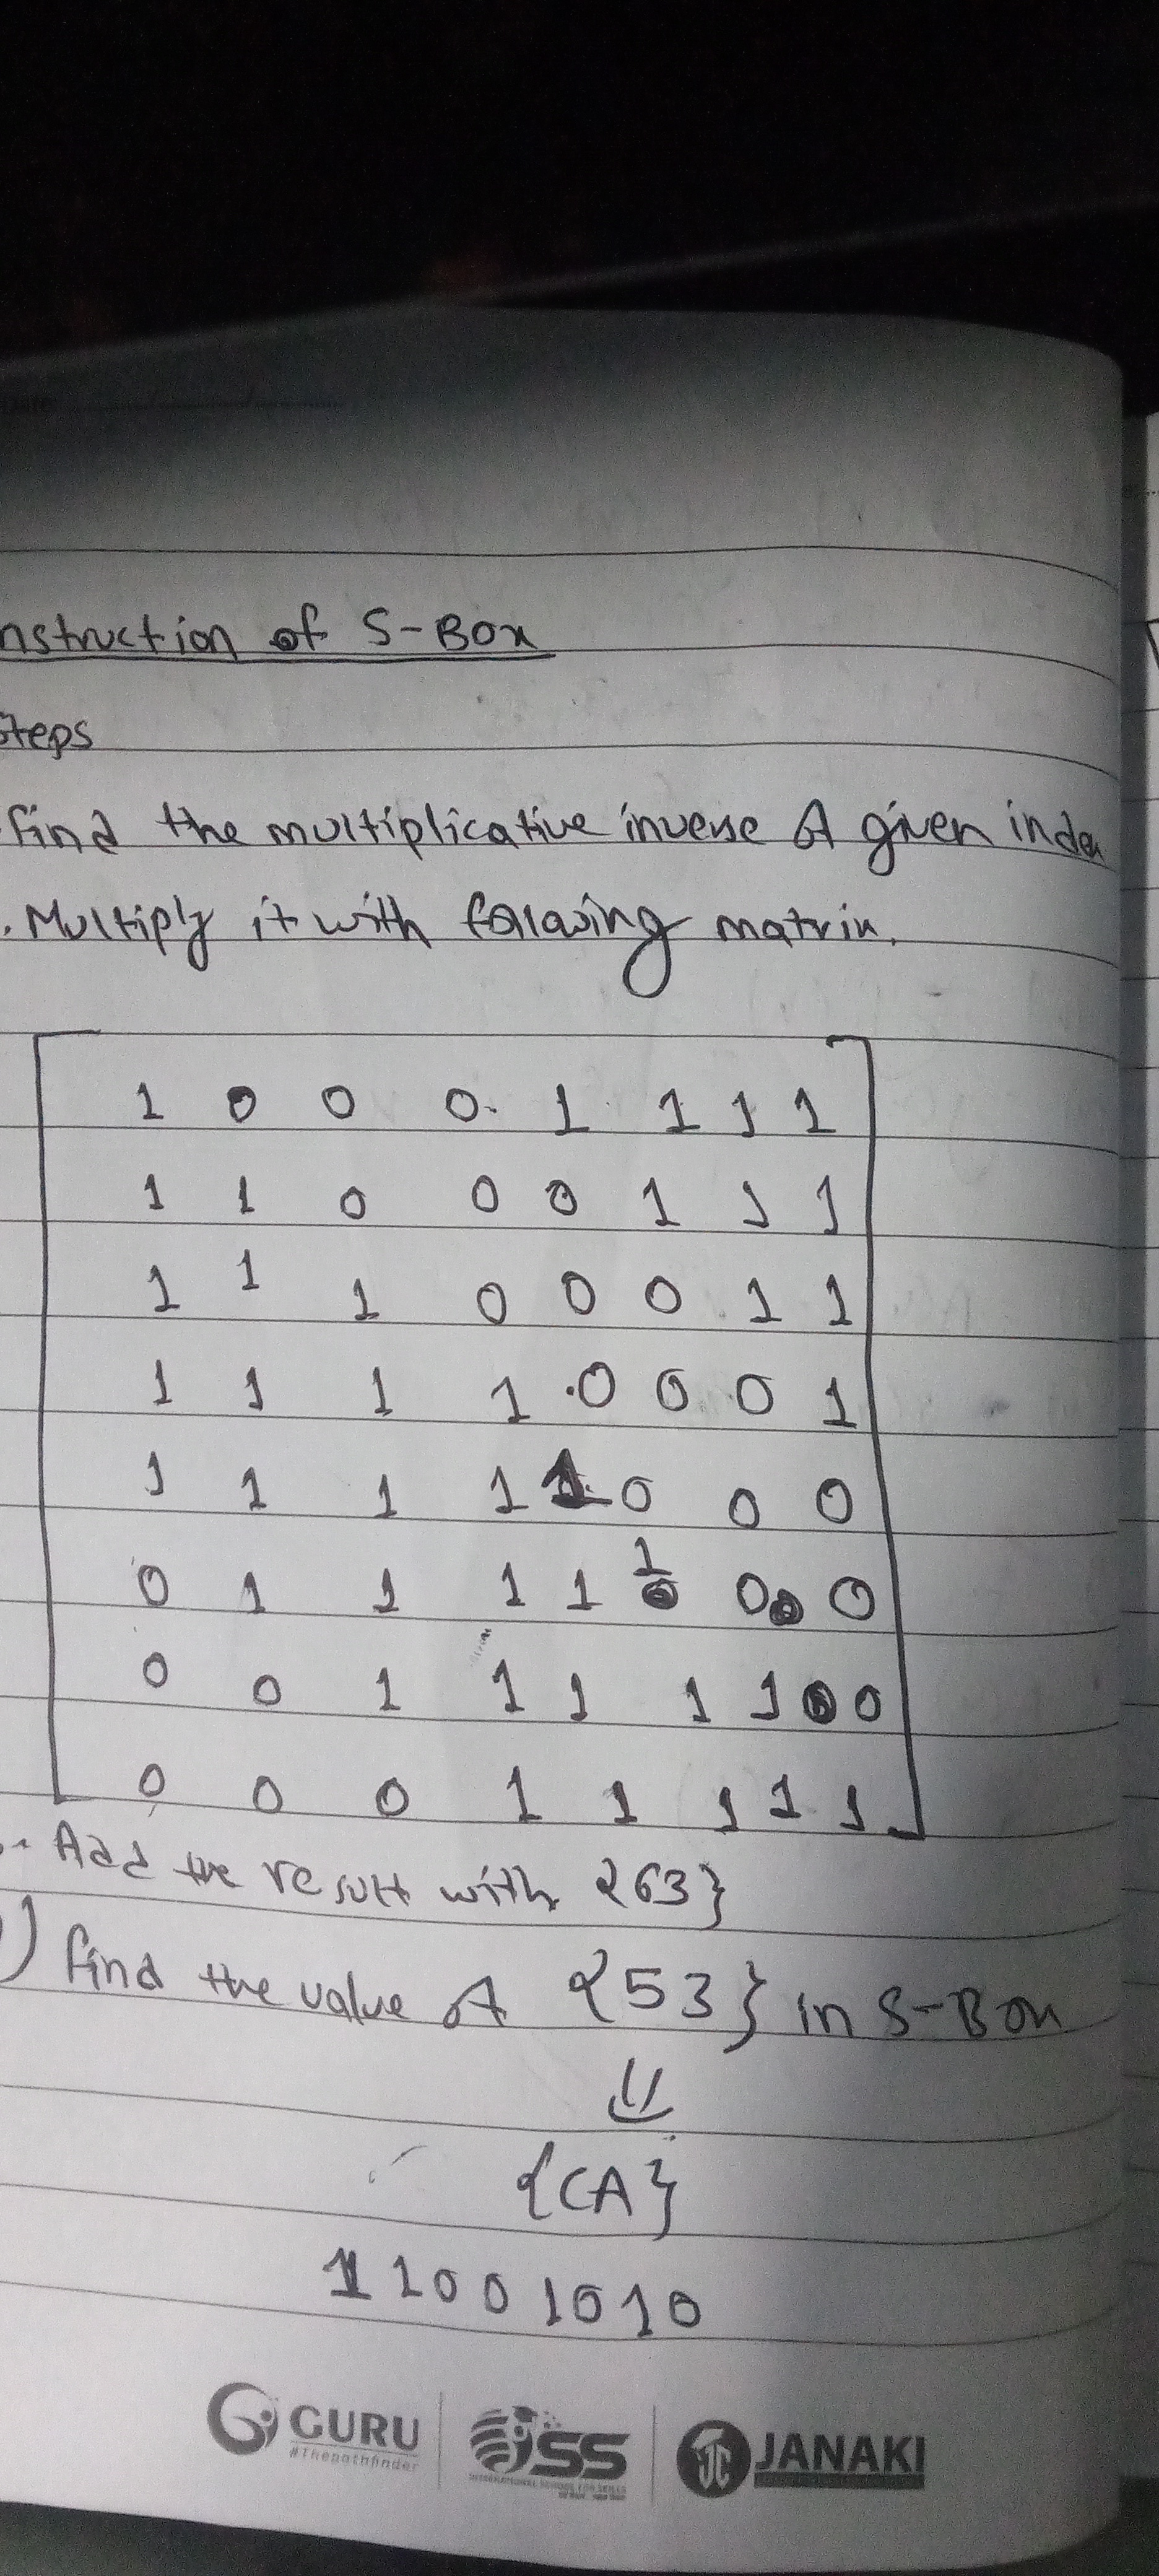 nstruction of S-Box
Steps
find the multiplicative inverse of given index
. Multiply it with following matrix.
1 0 0 0 1 1 1 1
1 1 0 0 0 1 1 1
1 1 1 0 0 0 1 1
1 1 1 1 0 0 0 1
1 1 1 1 1 0 0 0
0 1 1 1 1 1 0 0
0 0 1 1 1 1 1 0
0 0 0 1 1 1 1 1
Add the result with {63}
) find the value of {53} in S-Box
⇓
{CA}
11001010
GURU
#Thepathfinder
ISS
JC JANAKI